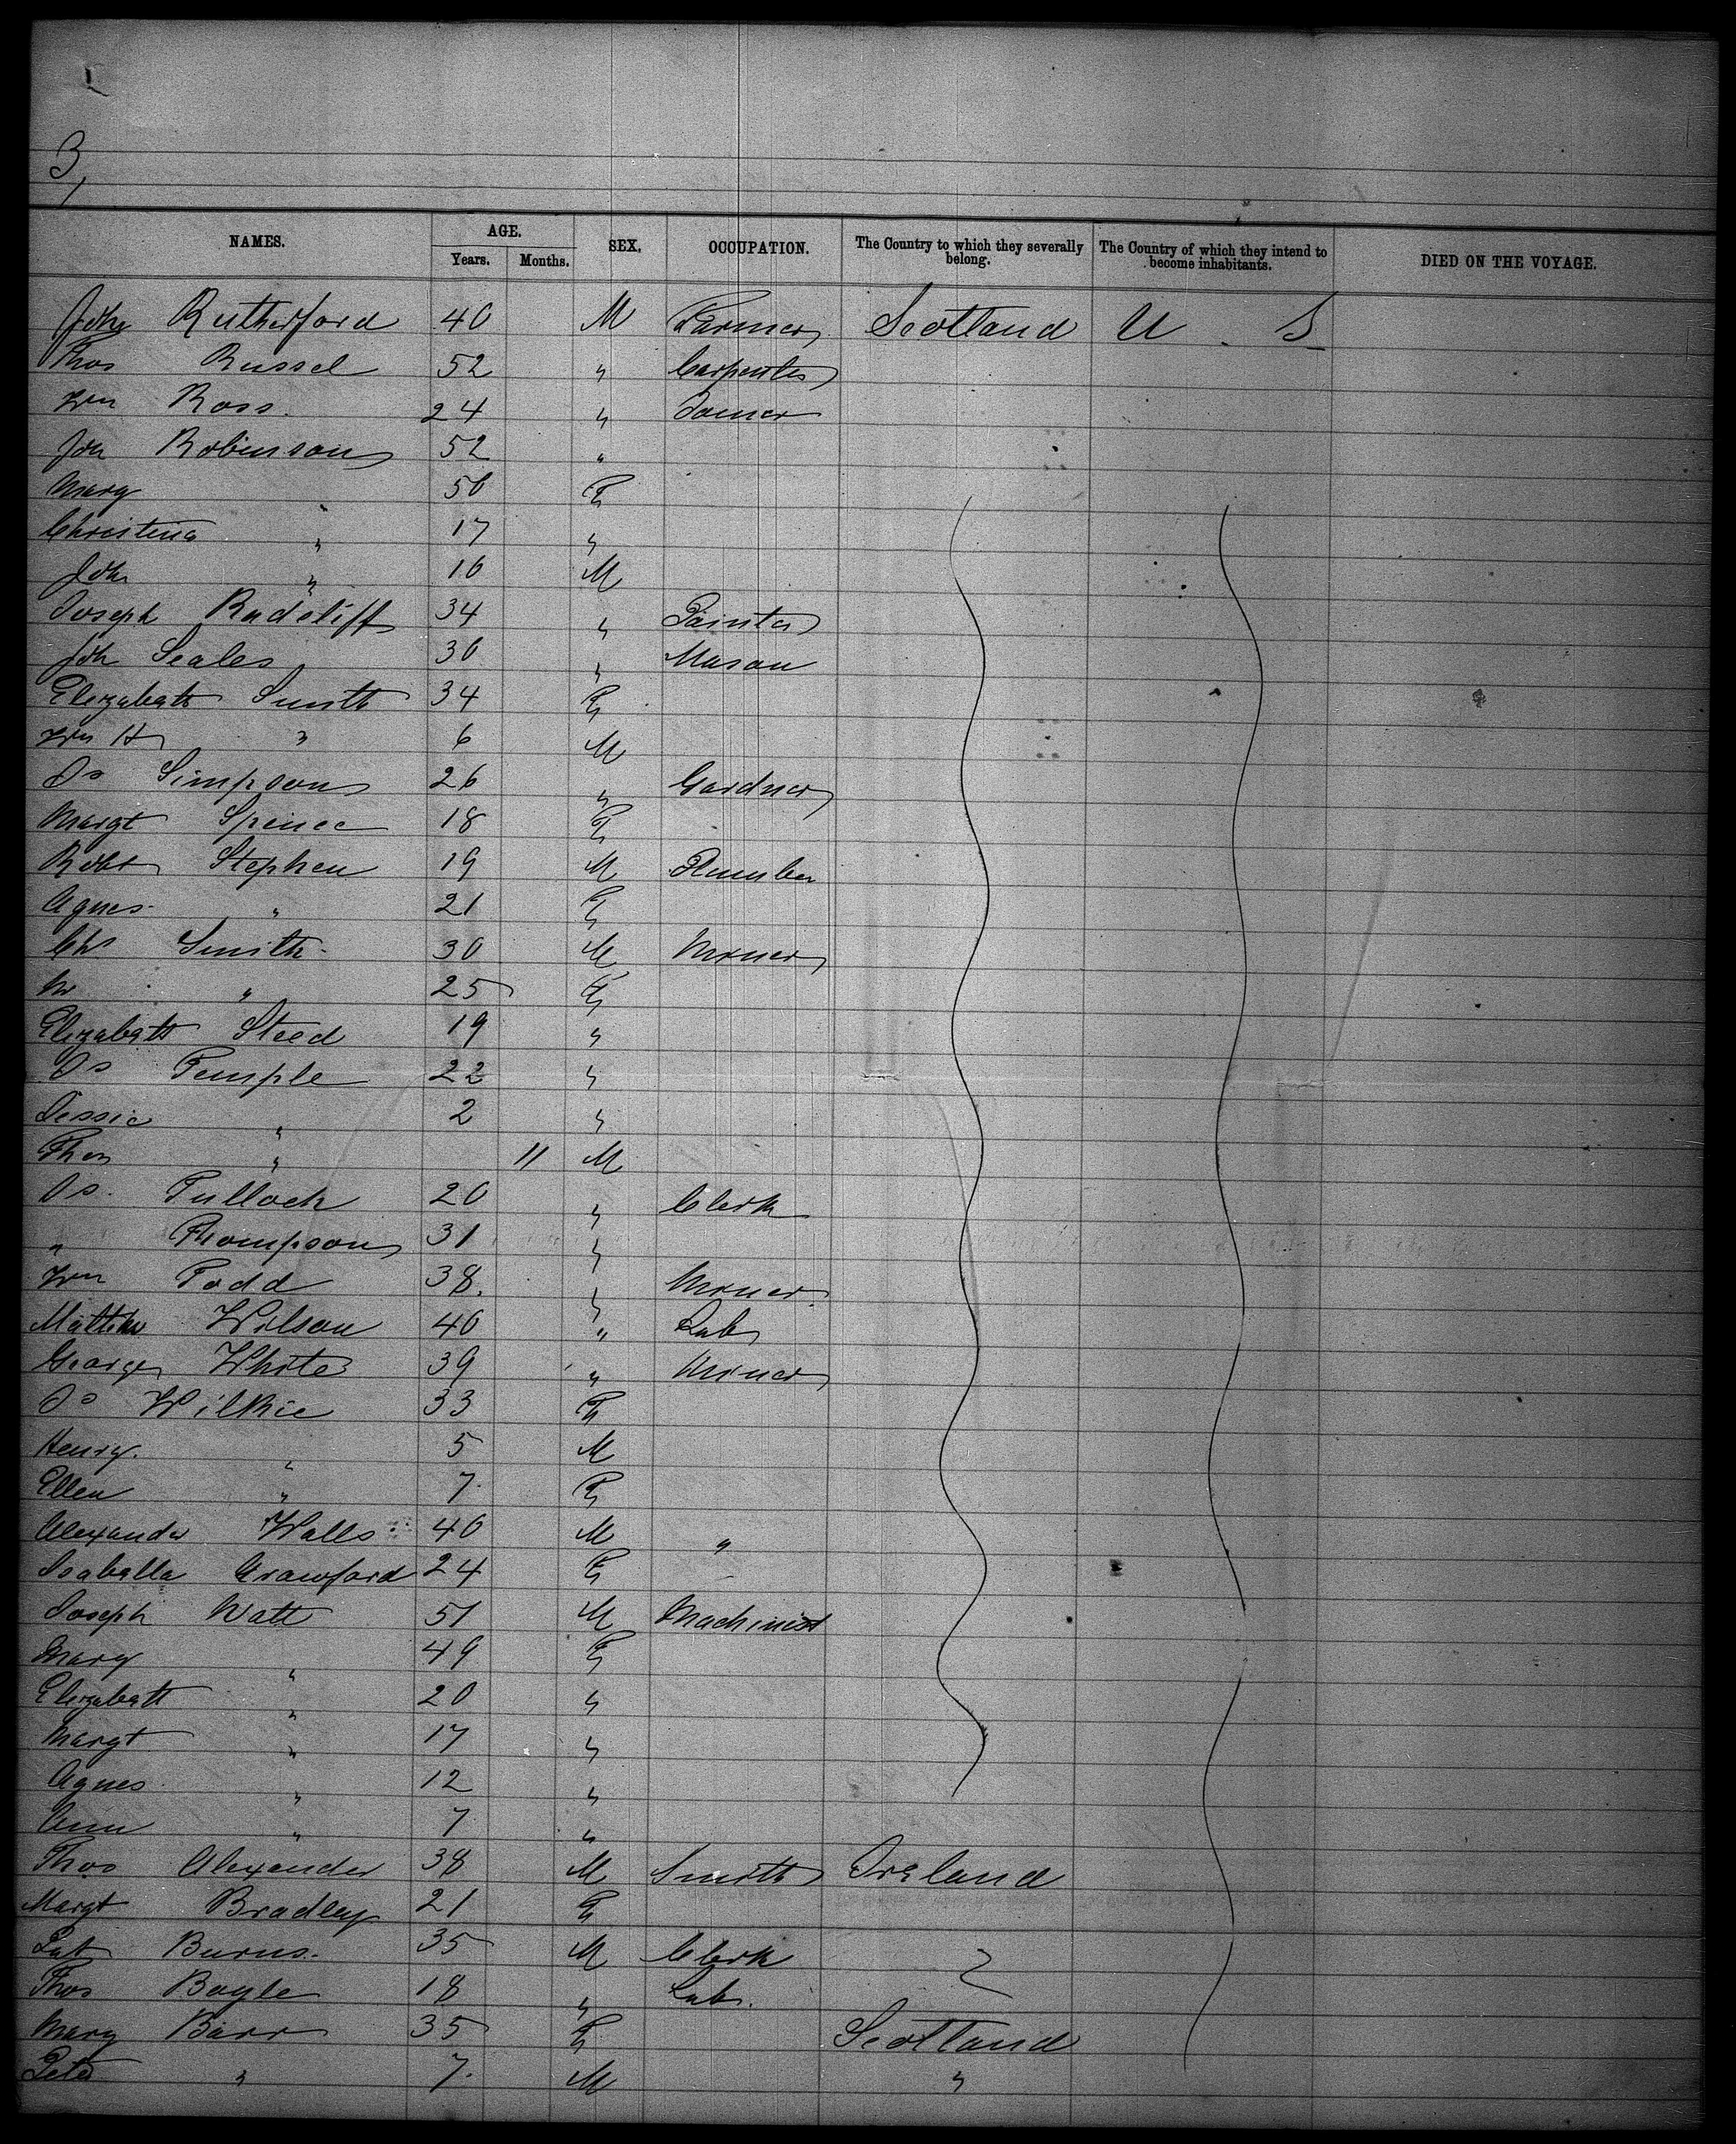 3
NAMES. AGE. SEX. OCCUPATION. The Country to which they severally belong. The Country of which they intend to become inhabitants. DIED ON THE VOYAGE.
Years. Months.
John Rutherford 40 M Farmer Scotland U. S
Thos Russel 52 " Carpenter
Wm Ross. 24 "
Jon Robinson 52 "
Mary 50 F
Christina " 17 "
John " 16 M
Joseph Radcliff 34 " Painter
Joh Scales 30 " Mason
Elizabeth Smith 34 F
Wm H " 6 M
Js Simpson 26 " Gardner
Margt Spence 18 F
Robt Stephen 19 M Plumber
Agnes " 21 F
Chs Smith 30 M Miner
M " 25 F
Elizabeth Steed 19 "
Js Temple 22 "
Jessie " 2 "
Thos " 11 M
Js. Tulloch 20 " Clerk
" Thompson 31 "
Wm Todd 38. " Miner
Mathew Wilson 40 " Lab
George White 39 " Miner
Js Wilkie 33 F
Henry. " 5 M
Ellen " 7 F
Alexander Walls 40 M "
Isabella Crawford 24 F
Joseph Watt 51 M Machinist
Mary " 49 F
Elizabeth " 20 "
Margt " 17 "
Agnes " 12 "
Ann " 7 "
Thos Alexander 38 M Smith Ireland
Margt Bradley 21 F
Pat Burns. 35 M Clerk
Thos Boyle 18 " Lab.
Mary Barr 35 F Scotland
Peter " 7. M "